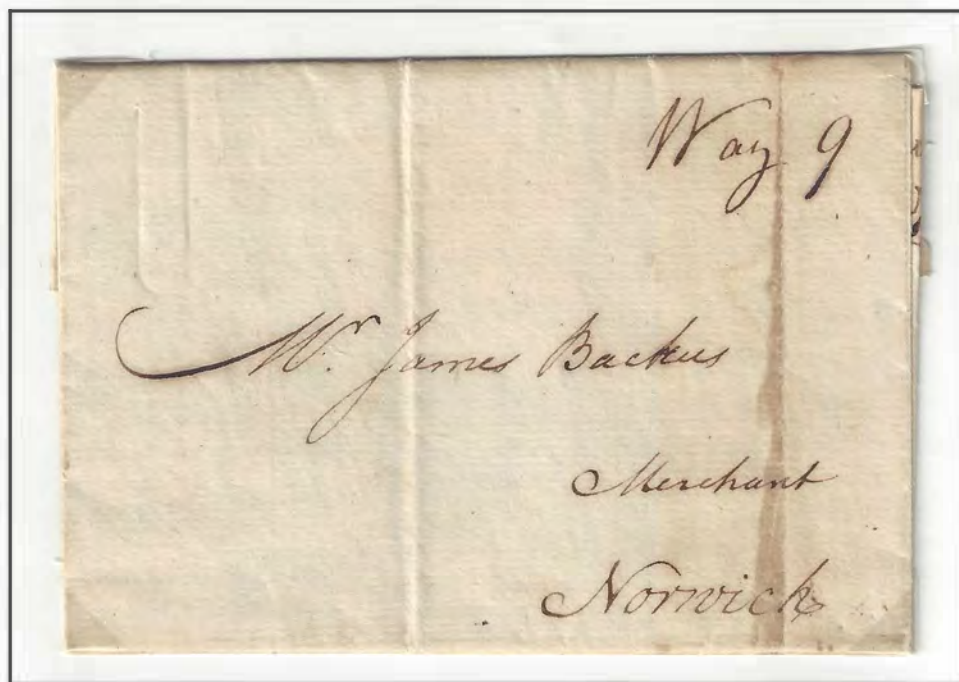 Way 9
Mr. James Backus
Merchant
Norwich